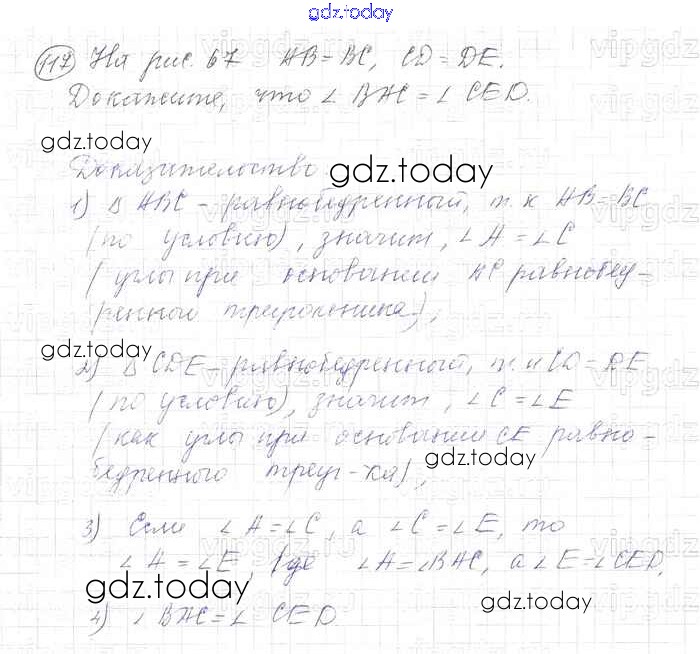 gdz.today
117 На рис. 67 AB = BC, CD = DE.
Докажите, что ∠ BAC = ∠ CED.
gdz.today
Доказательство
gdz.today
1) Δ ABC – равнобедренный, т.к AB = BC
(по условию), значит, ∠A = ∠C
(углы при основании AC равнобед-
ренного треугольника),
gdz.today
2) Δ CDE – равнобедренный, т.к CD = DE
(по условию), значит, ∠C = ∠E
(как углы при основании CE равно-
бедренного треуг-ка),
gdz.today
3) Если ∠A = ∠C, а ∠C = ∠E, то
∠A = ∠E, где ∠A = ∠BAC, а ∠E = ∠CED,
gdz.today
gdz.today
4) ∠ BAC = ∠ CED